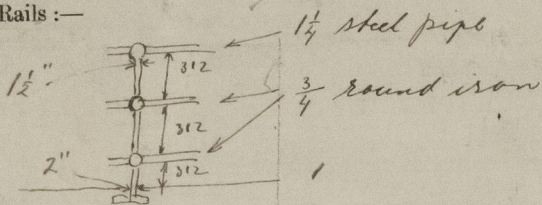 Rails :—
1 1/4 steel pipe
1 1/2"
312
3/4 round iron
312
2"
312